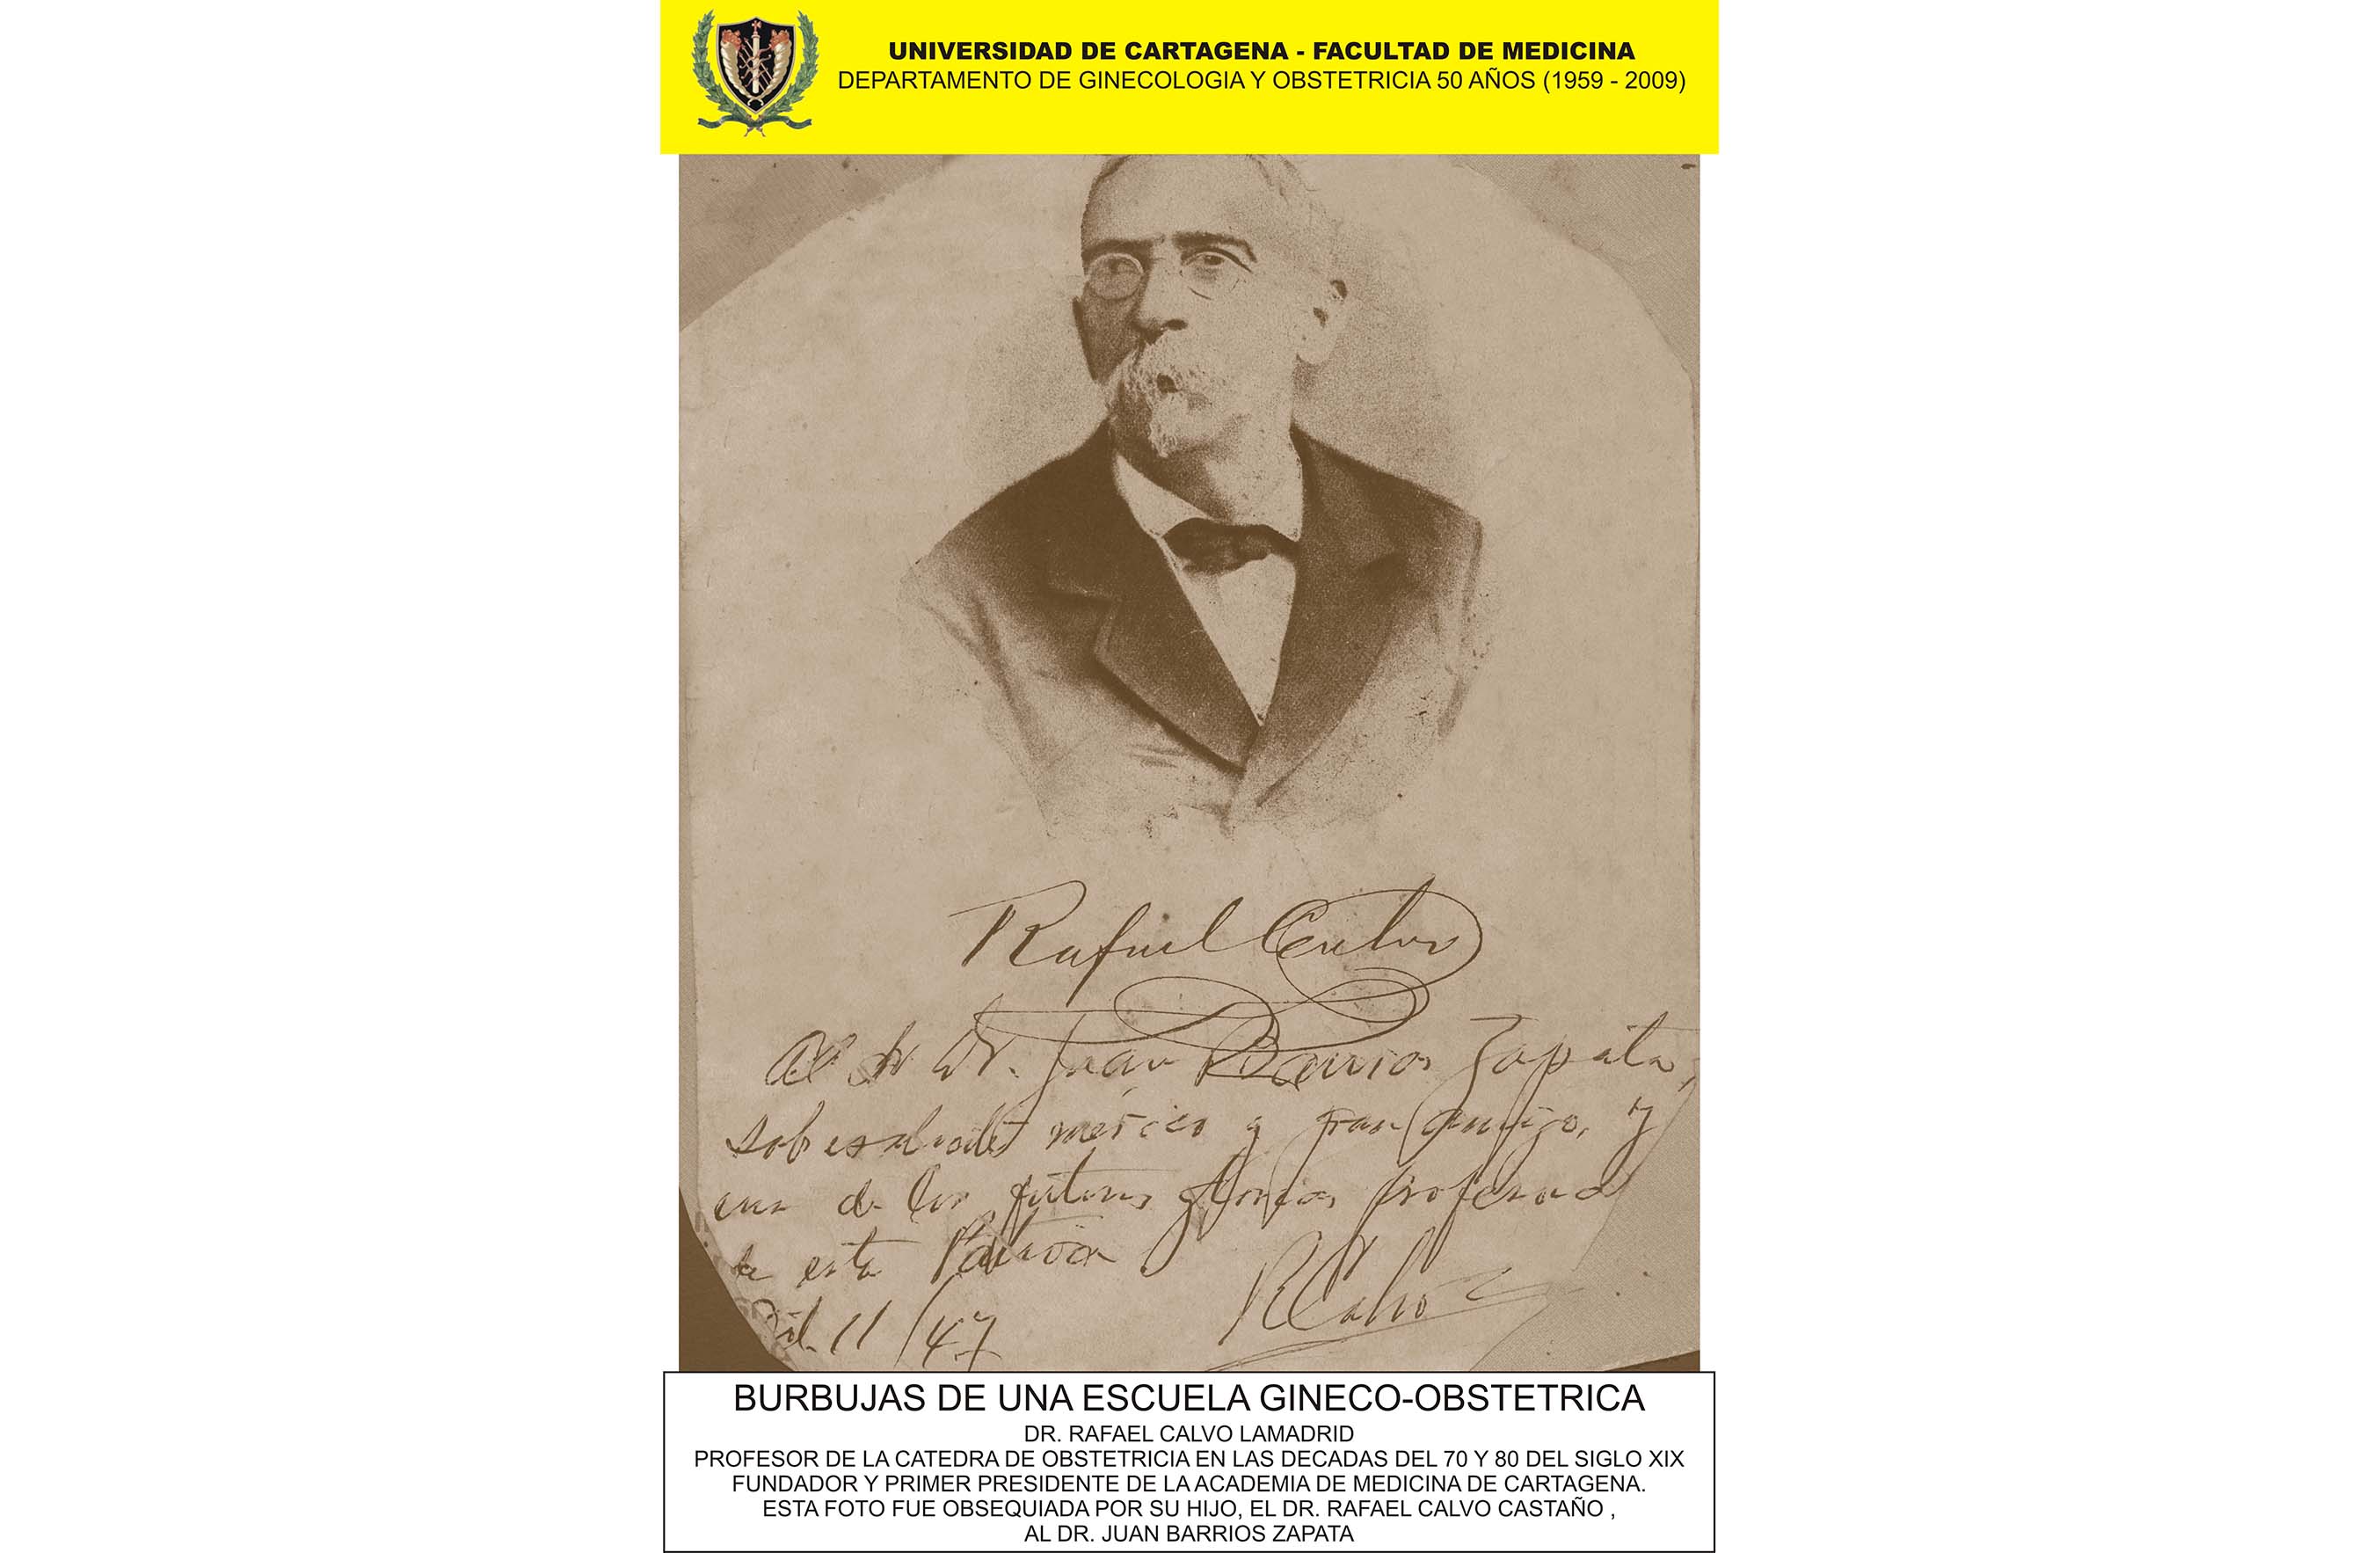 UNIVERSIDAD DE CARTAGENA - FACULTAD DE MEDICINA
DEPARTAMENTO DE GINECOLOGIA Y OBSTETRICIA 50 AÑOS (1959 - 2009)
Rafael Calvo
Al Dr. Juan Barrios Zapata,
sobresaliente médico y gran amigo, y
una de las futuras glorias
de esta Patria
11/47
RCalvo
BURBUJAS DE UNA ESCUELA GINECO-OBSTETRICA
DR. RAFAEL CALVO LAMADRID
PROFESOR DE LA CATEDRA DE OBSTETRICIA EN LAS DECADAS DEL 70 Y 80 DEL SIGLO XIX
FUNDADOR Y PRIMER PRESIDENTE DE LA ACADEMIA DE MEDICINA DE CARTAGENA.
ESTA FOTO FUE OBSEQUIADA POR SU HIJO, EL DR. RAFAEL CALVO CASTAÑO ,
AL DR. JUAN BARRIOS ZAPATA